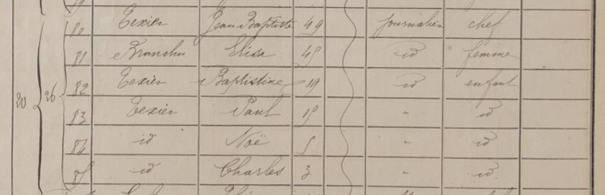 80 Texier Jean Baptiste 49 journalier chef
81 Branchu Elisa 48 id femme
20 26 82 Texier Baptistine 19 id enfant
83 Texier Paul 18 " id
84 id Noë 8 " id
id Charles 3 " id